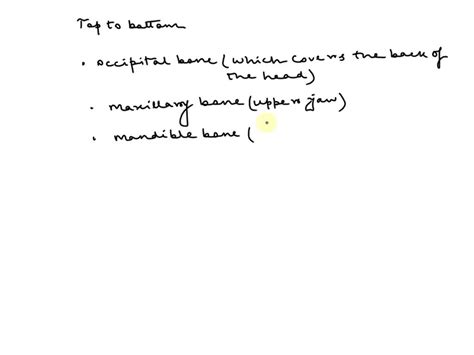 Top to bottom
• occipital bone (which covers the back of
the head)
• maxillary bone (upper jaw)
• mandible bone (